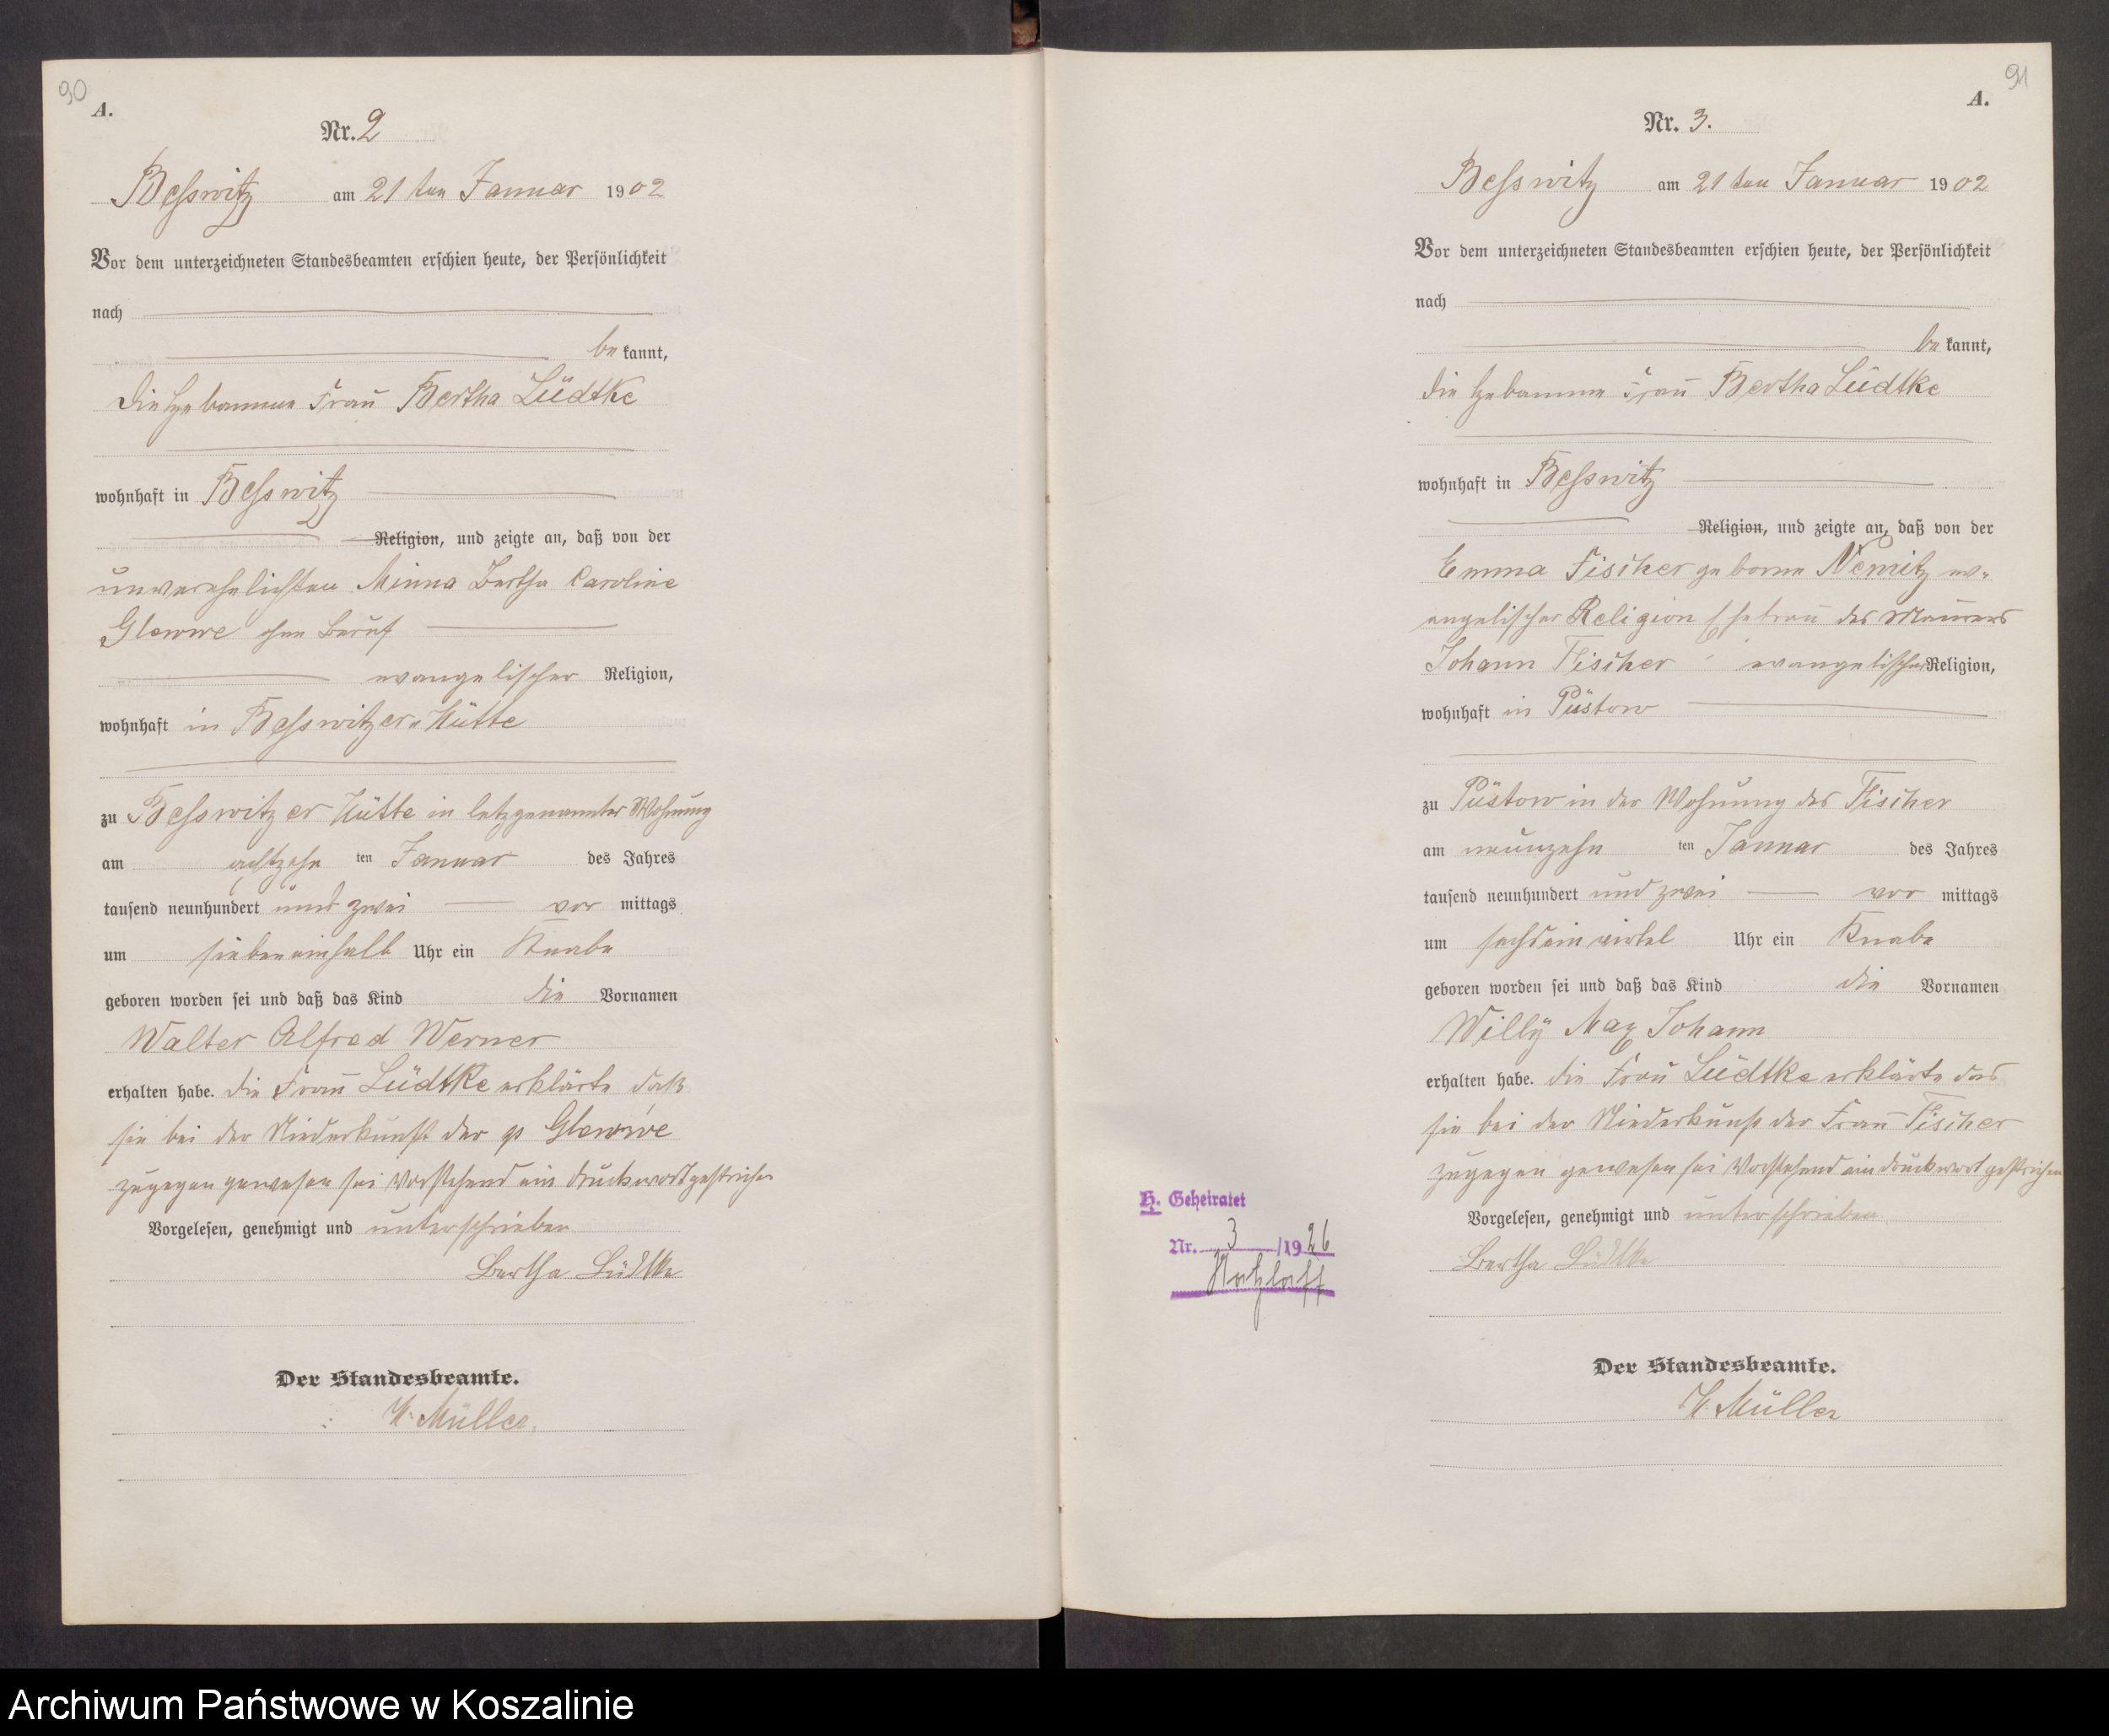 90
A.
Nr. 2
Besswitz am 21 ten Januar 1902
Vor dem unterzeichneten Standesbeamten erschien heute, der Persönlichkeit
nach
be kannt,
die Hebamme Frau Bertha Lüdtke
wohnhaft in Besswitz
Religion, und zeigte an, daß von der
unverehelichten Minna Bertha Caroline
Glewwe ohne Beruf
evangelischer Religion,
wohnhaft in Besswitzer-Hütte
zu Besswitzer Hütte in letzgenannter Wohnung
am achtzehn ten Januar des Jahres
tausend neunhundert und zwei vor mittags
um siebeneinhalb Uhr ein Knabe
geboren worden sei und daß das Kind die Vornamen
Walter Alfred Werner
erhalten habe. die Frau Lüdtke erklärte daß
sie bei der Niederkunft der p Glewwe
zugegen gewesen sei Vorstehend ein Druckwort gestrichen
Vorgelesen, genehmigt und unterschrieben
Bertha Lüdtke
Der Standesbeamte.
Müller.
91
A.
Nr. 3.
Besswitz am 21 ten Januar 1902
Vor dem unterzeichneten Standesbeamten erschien heute, der Persönlichkeit
nach
be kannt,
die Hebamme Frau Bertha Lüdtke
wohnhaft in Besswitz
Religion, und zeigte an, daß von der
Emma Fischer geborne Nemitz ev-
angelischer Religion Ehefrau des Maurers
Johann Fischer evangelischer Religion,
wohnhaft in Püstow
zu Püstow in der Wohnung des Fischer
am neunzehn ten Januar des Jahres
tausend neunhundert und zwei vor mittags
um sechseinviertel Uhr ein Knabe
geboren worden sei und daß das Kind die Vornamen
Willy Max Johann
erhalten habe. die Frau Lüdtke erklärte das
sie bei der Niederkunft der Frau Fischer
zugegen gewesen sei Vorstehend ein Druckwort gestrichen
Vorgelesen, genehmigt und unterschrieben
Bertha Lüdtke
Der Standesbeamte.
Müller
H. Geheiratet
Nr. 3 /1926
Archiwum Państwowe w Koszalinie